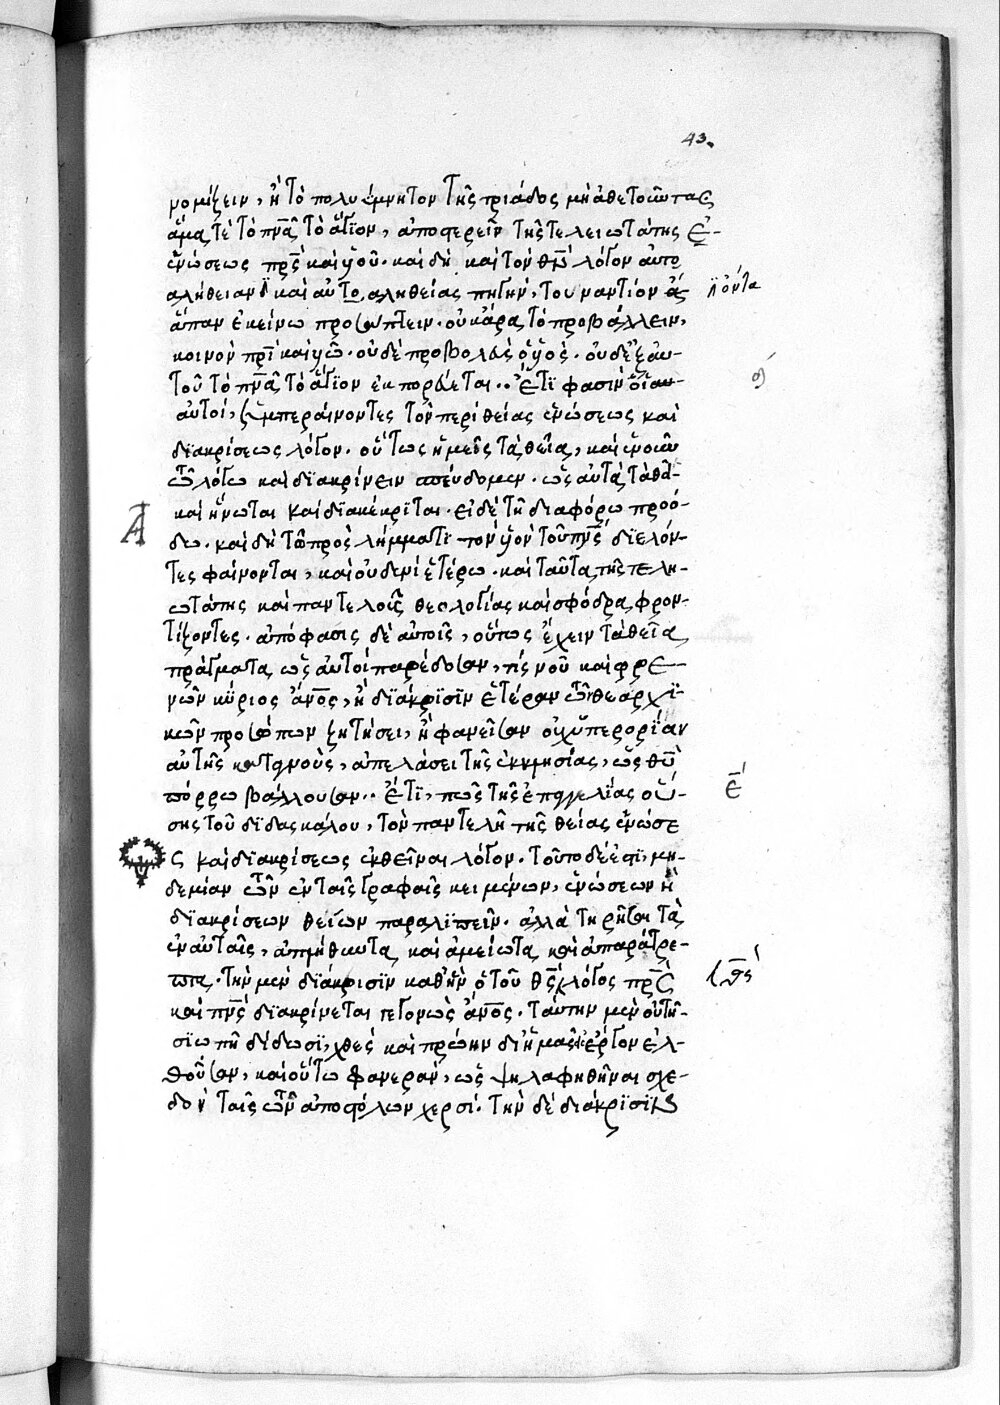 43.
νομίζειν, ἢ τὸ πολυύμνητον τῆς τριάδος μὴ ἀθετοῦντας
ἅμα τὲ τὸ πν̅α τὸ ἅγϊον, ἀποφερεῖν τῆς τελειωτάτης
ἑνώσεως πρ̅ς καὶ υἱοῦ. καὶ δὴ καὶ τὸν θ̅υ λόγον αὐτο
αλήθειαν καὶ αὐτο αληθείας πηγήν, τουναντίον
ἅπαν ἐκείνω προσάπτειν. οὐκ ἄρα τὸ προβάλλειν,
κοινὸν πρ̅ὶ καὶ υἱῶ. οὐδὲ προβολεὺς ὁ υἱός. οὐδ' ἐξ αυ-
τοῦ τὸ πν̅α τὸ ἅγϊον ἐκπορεύεται.. Ἔτϊ φασὶν οἷ
αυτοί, συμπεραίνοντες τὸν περὶ θείας ἑνώσεως καὶ
δϊακρίσεως λόγον. οὕτως ἡμεῖς τὰ θεῖα, καὶ ἑνοῦν
τῶ λόγω καὶ δϊακρίνειν σπεύδομεν. ὡς αὐτὰ τὰ θεῖα
καὶ ἥνωται καὶ δϊακέκρϊται. εἰ δὲ τῆ διαφόρω προό-
δω. καὶ δὴ τῶ προσλήμματϊ τὸν υἱὸν τοῦ πν̅ς δϊελόν-
τες φαίνονται, καὶ οὐδενὶ ἑτέρω. καὶ ταῦτα τῆς τελη-
ωτάτης καὶ παντελοῦς θεολογίας καὶ σφόδρα φρον-
τίζοντες. ἀπόφασις δὲ αὐτοῖς, οὕτως ἔχειν τὰ θεῖα
πράγματα ὡς αὐτοὶ παρέδωσαν, τίς νοῦ καὶ φρε
νῶν κύριος ἄν̅ος, ἢ δϊάκρϊσϊν ἑτέραν τῶν θεαρχϊ-
κῶν προσώπων ζητήσει, ἢ φανεῖσαν οὐχ ὑπερορϊαν
αὐτῆς καταγνοὺς, ἀπελάσει τῆς ἐκκλησίας, ὡς θ̅ῦ
πόρρω βάλλουσαν.. Ἔτϊ, πῶς τῆς ἐπαγγελίας οὔ-
σης τοῦ δϊδασκάλου, τὸν παντελῆ τῆς θείας ἑνώσε
ς καὶ δϊακρίσεως ἐκθεῖναι λόγον. τοῦτο δέ ἐστϊ, μη-
δεμίαν τῶν ἐν ταῖς γραφαῖς κειμένων, ἑνώσεων ἢ
δϊακρίσεων θείων παραλϊπεῖν. ἀλλὰ τηρῆσαι τὰ
ἐν αὐταῖς, ἀπληθωτα καὶ ἀμείωτα καὶ ἀπαράτρε-
πτα. τὴν μὲν δϊάκρισϊν καθ' ἣν ὁ τοῦ θ̅ῦ λόγος πρ̅ς
καὶ πν̅ς δϊακρίνεται γεγονὼς ἄν̅ος. ταύτην μὲν οὐτη-
σϊωπῆ δίδωσϊ, χθὲς καὶ πρώην δι' ἡμᾶς εἰς ἔργον ἐλ-
θοῦσαν, καὶ οὕτω φανεράν, ὡς ψηλαφηθῆναι σχε-
δὸν ταῖς τῶν ἀποστόλων χερσί. τὴν δὲ διάκρϊσϊν